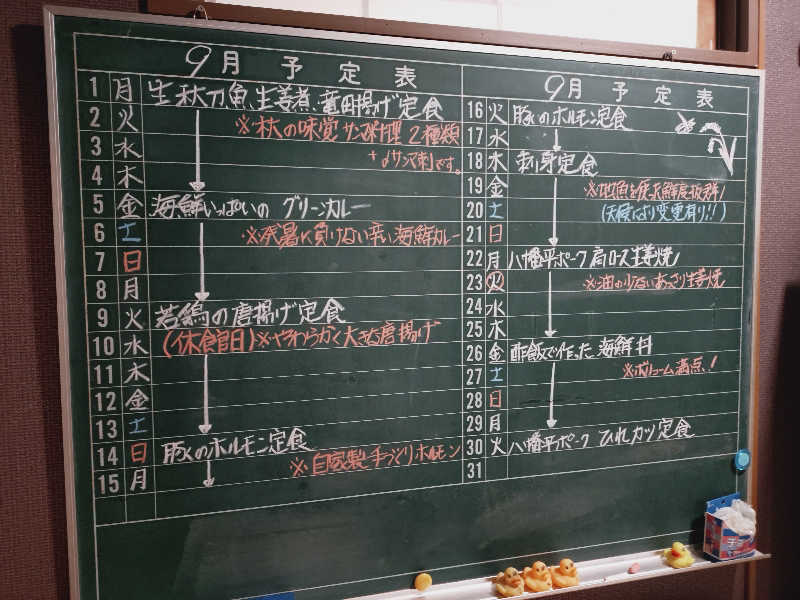 9月 予定表
1 月 生秋刀魚、生姜煮、竜田揚げ定食
2 火 ※秋の味覚 サンマ料理 2種類
3 水 サンマ刺です。
4 木
5 金 海鮮いっぱいの グリーンカレー
6 土 ※残暑に負けない辛い海鮮カレー
7 日
8 月
9 火 若鶏の唐揚げ定食
10 水 (休館日)※やわらかく大きな唐揚げ
11 木
12 金
13 土
14 日 豚のホルモン定食
15 月 ※自家製手づくりホルモン
9月 予定表
16 火 豚のホルモン定食
17 水
18 木 刺身定食
19 金 ※地魚を使え鮮度抜群!
20 土 (天候により変更有り!!)
21 日
22 月 八幡平ポーク肩ロース生姜焼
23 火 ※油の少ないあっさり生姜焼
24 水
25 木
26 金 酢飯で作った海鮮丼
27 土 ※ボリューム満点、!
28 日
29 月
30 火 八幡平ポーク ひれカツ定食
31